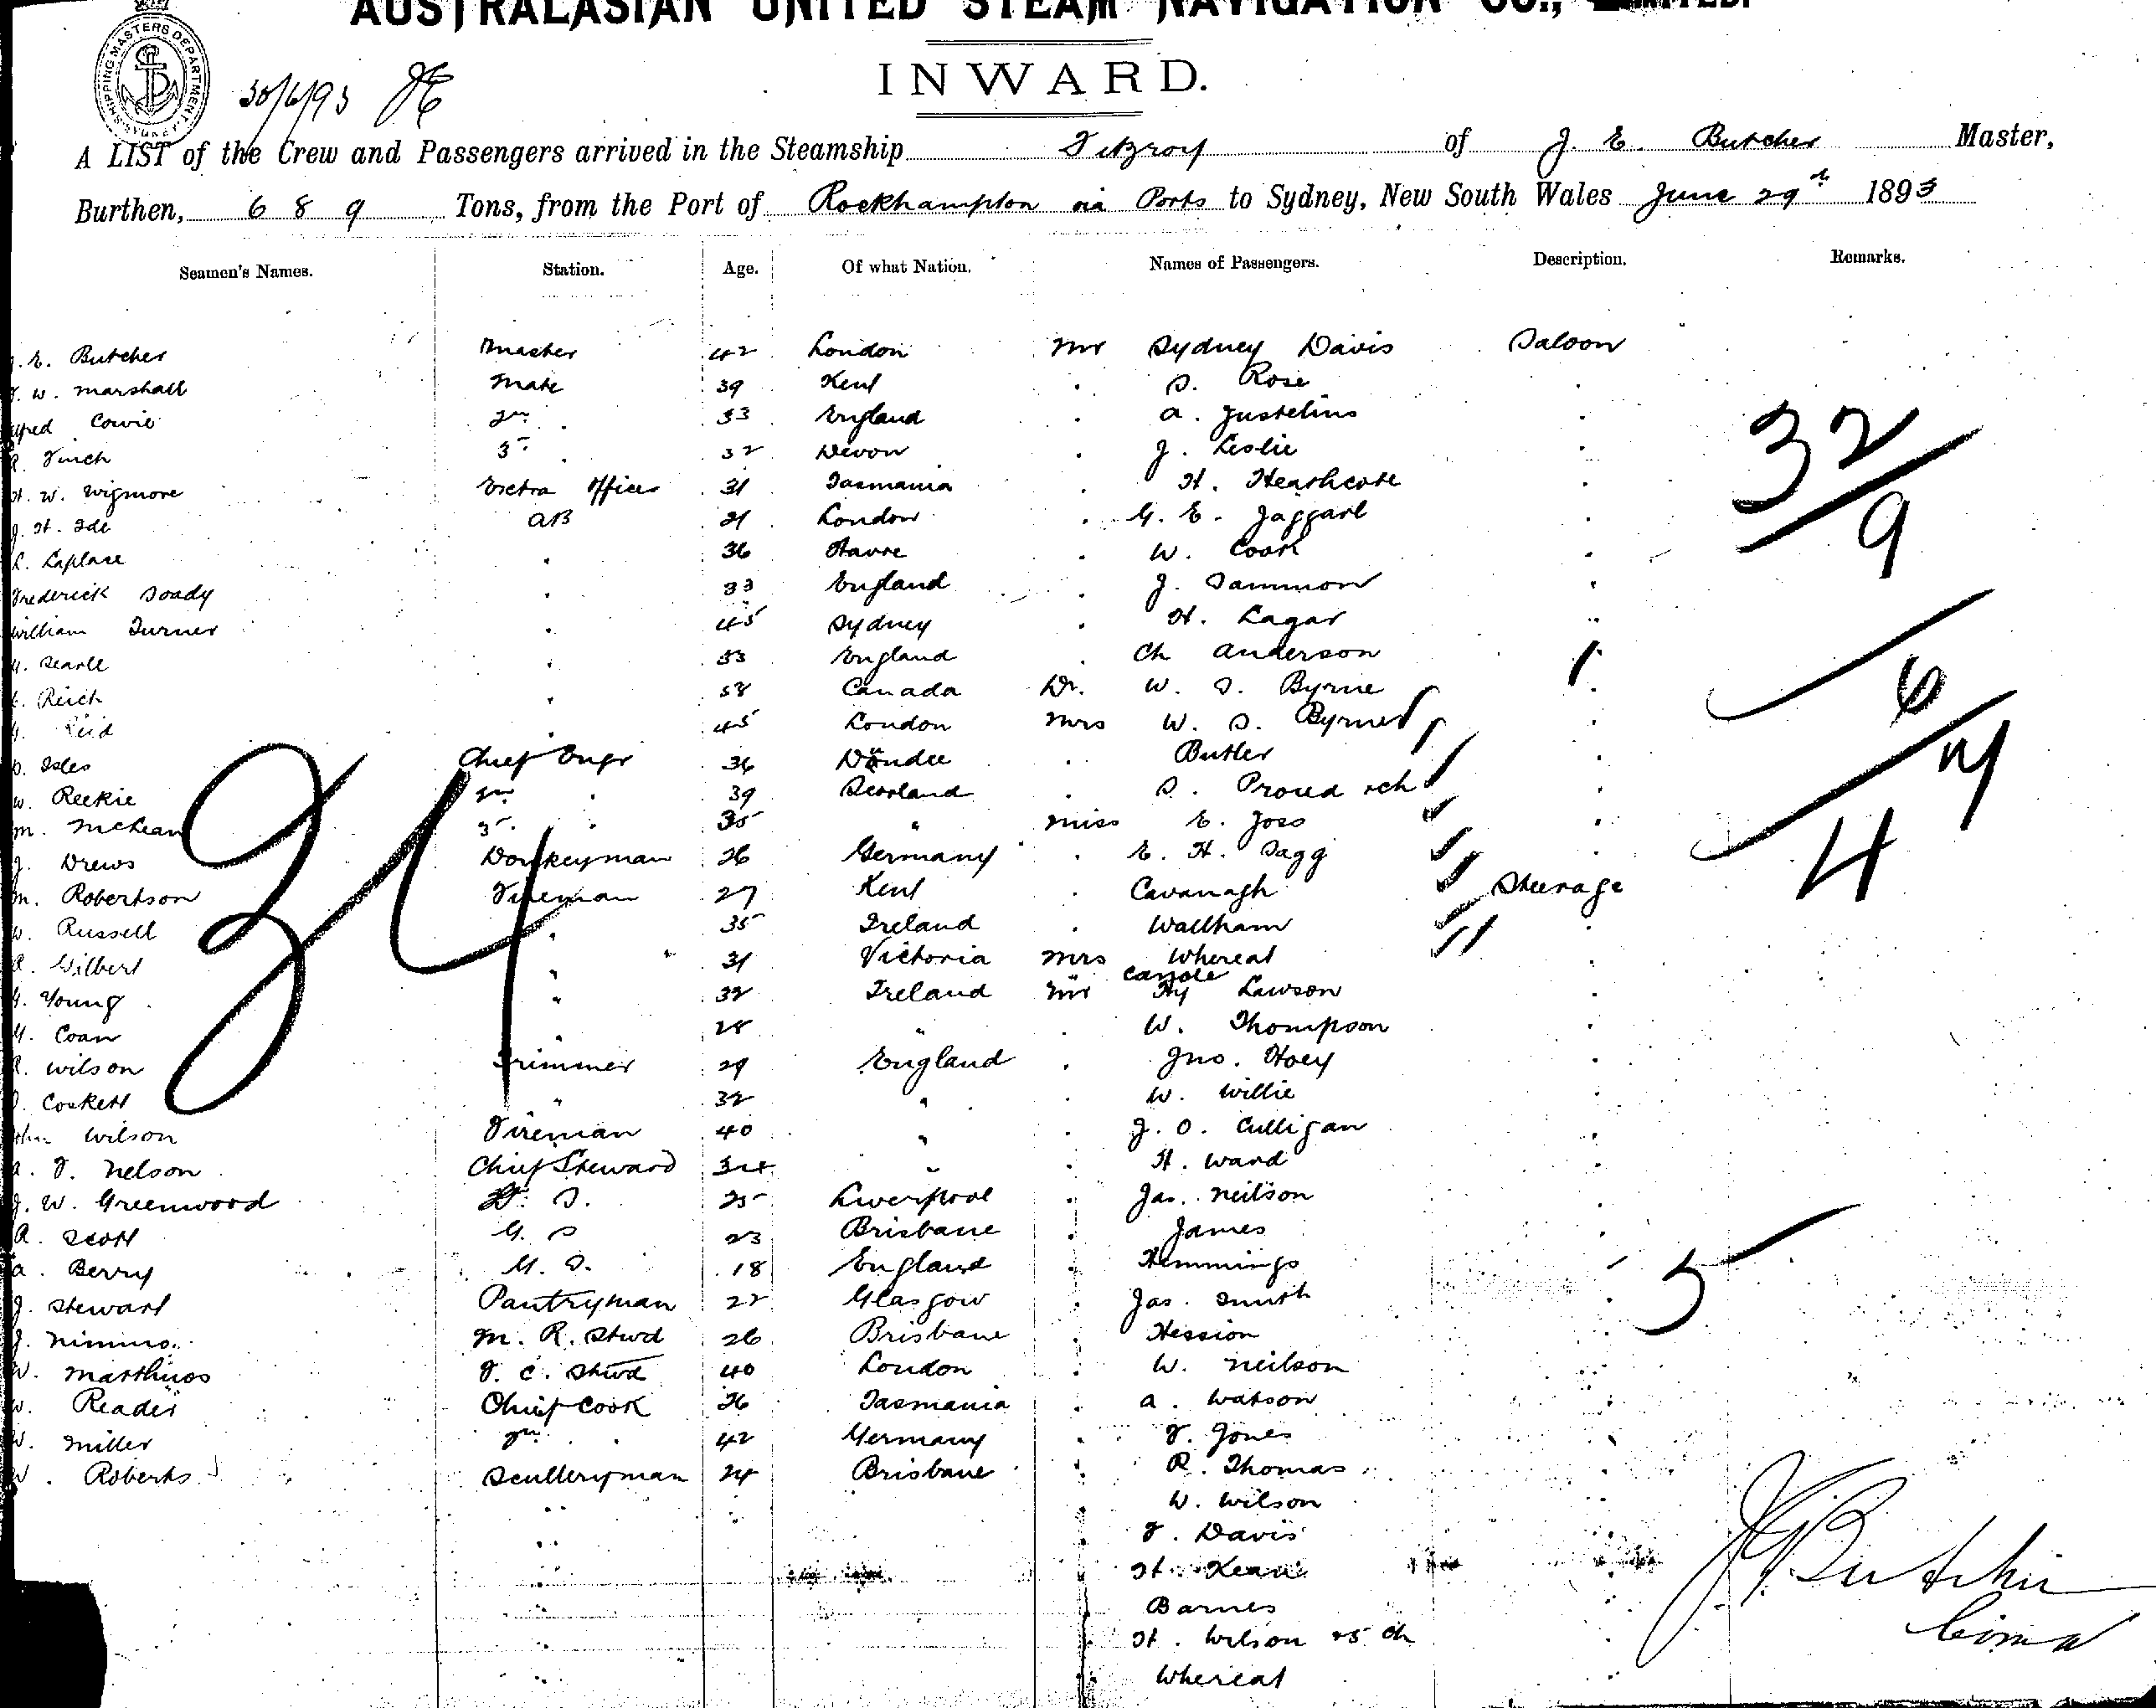 AUSTRALASIAN UNITED STEAM NAVIGATION CO., LIMITED.
SHIPPING MASTERS DEPARTMENT SYDNEY
INWARD.
30/6/93
A LIST of the Crew and Passengers arrived in the Steamship Fitzroy of J. E. Butcher Master,
Burthen, 6 8 9 Tons, from the Port of Rockhampton via Ports to Sydney, New South Wales June 29th 1893
Seamen's Names. Station. Age. Of what Nation. Names of Passengers. Description. Remarks.
. E. Butcher Master 42 London Mr Sydney Davis Saloon
F. W. Marshall Mate 39 Kent . S. Rose .
Cowie 2nd . 33 England . A. Justelius .
Finch 3r . 32 Devon . J. Leslie .
H. W. Wigmore Extra Officer 31 Tasmania . H. Heathcote .
J. H. Ide AB 21 London . G. E. Jaggard .
L. Laplace . 36 Havre . W. Cook .
Frederick Soady . 33 England . J. Sammon .
William Turner . 45 Sydney . H. Lagar
. Searle . 53 England . Ch Anderson
. Reich . 58 Canada Dr. W. S. Byrne .
. Reid . 45 London Mrs W. S. Byrne .
. Isles Chief Engr 36 Dundee . . Butler .
W. Reekie 2nd . 39 Scotland . S. Proud + ch .
M. McLean 3r . 35 " Miss E. Joss .
J. Drews Donkeyman 26 Germany . E. H. Sagg .
M. Robertson Fireman 27 Kent . Cavanagh Steerage
W. Russell . 35 Ireland . Wallham .
R. Gilbert " 31 Victoria Mrs Whereat .
. Young " 32 Ireland Mr Hy Lawson .
. Coan " 28 " . W. Thompson .
R. Wilson Trimmer 29 England . Jno. Hoey .
. Coskett " 32 " . W. Willie .
John Wilson Fireman 40 " . J. O. Culligan .
A. F. Nelson Chief Steward 34 " . H. Ward .
J. W. Greenwood S. 25 Liverpool . Jas. Neilson .
R. Scott G. S 23 Brisbane . James .
A. Berry G. S. 18 England . Hemmings .
J. Stewart Pantryman 22 Glasgow . Jas. Smith .
J. Nimmo M. R. Stwd 26 Brisbane . Hession .
W. Matthews F. C. Stwd 40 London . W. Neilson .
W. Reader Chief Cook 26 Tasmania . A. Watson .
W. Miller 2nd . 42 Germany . F. Jones .
W. Roberts Sculleryman 24 Brisbane . R. Thomas .
W. Wilson
F. Davis
H. Kean
Barnes
H. Wilson + 5 ch
Whereat
32
9
6
4
34
5
J E Butcher